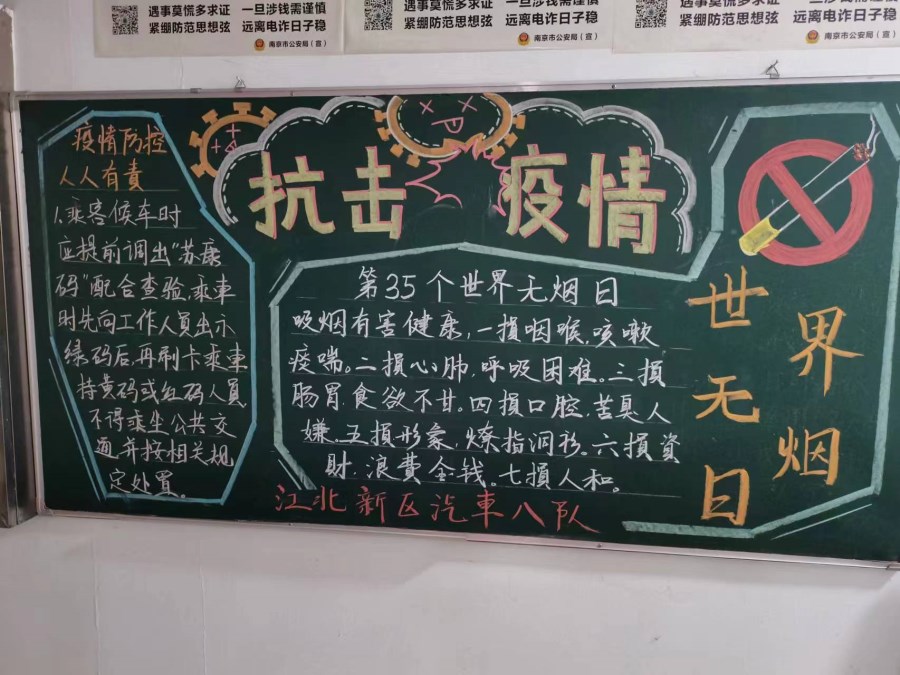 遇事莫慌多求证 一旦涉钱需谨慎
紧绷防范思想弦 远离电诈日子稳
南京市公安局（宣）
遇事莫慌多求证 一旦涉钱需谨慎
紧绷防范思想弦 远离电诈日子稳
南京市公安局（宣）
遇事莫慌多求证 一旦涉钱需谨慎
紧绷防范思想弦 远离电诈日子稳
南京市公安局（宣）
抗击疫情
疫情防控
人人有責
1.乘客候车时
应提前调出“苏康
码”配合查验，乘車
时先向工作人员出示
绿码后，再刷卡乘車
持黄码或红码人員
不得乘坐公共交
通，并按相关规
定处置。
第35个世界无烟日
吸烟有害健康，一損咽喉，咳嗽
痰喘。二損心肺，呼吸困难。三損
肠胃食欲不甘。四損口腔，苦臭人
嫌。五損形象，燎指洞衫。六損資
財，浪費金钱。七損人和。
江北新区汽車八队
世界无烟日